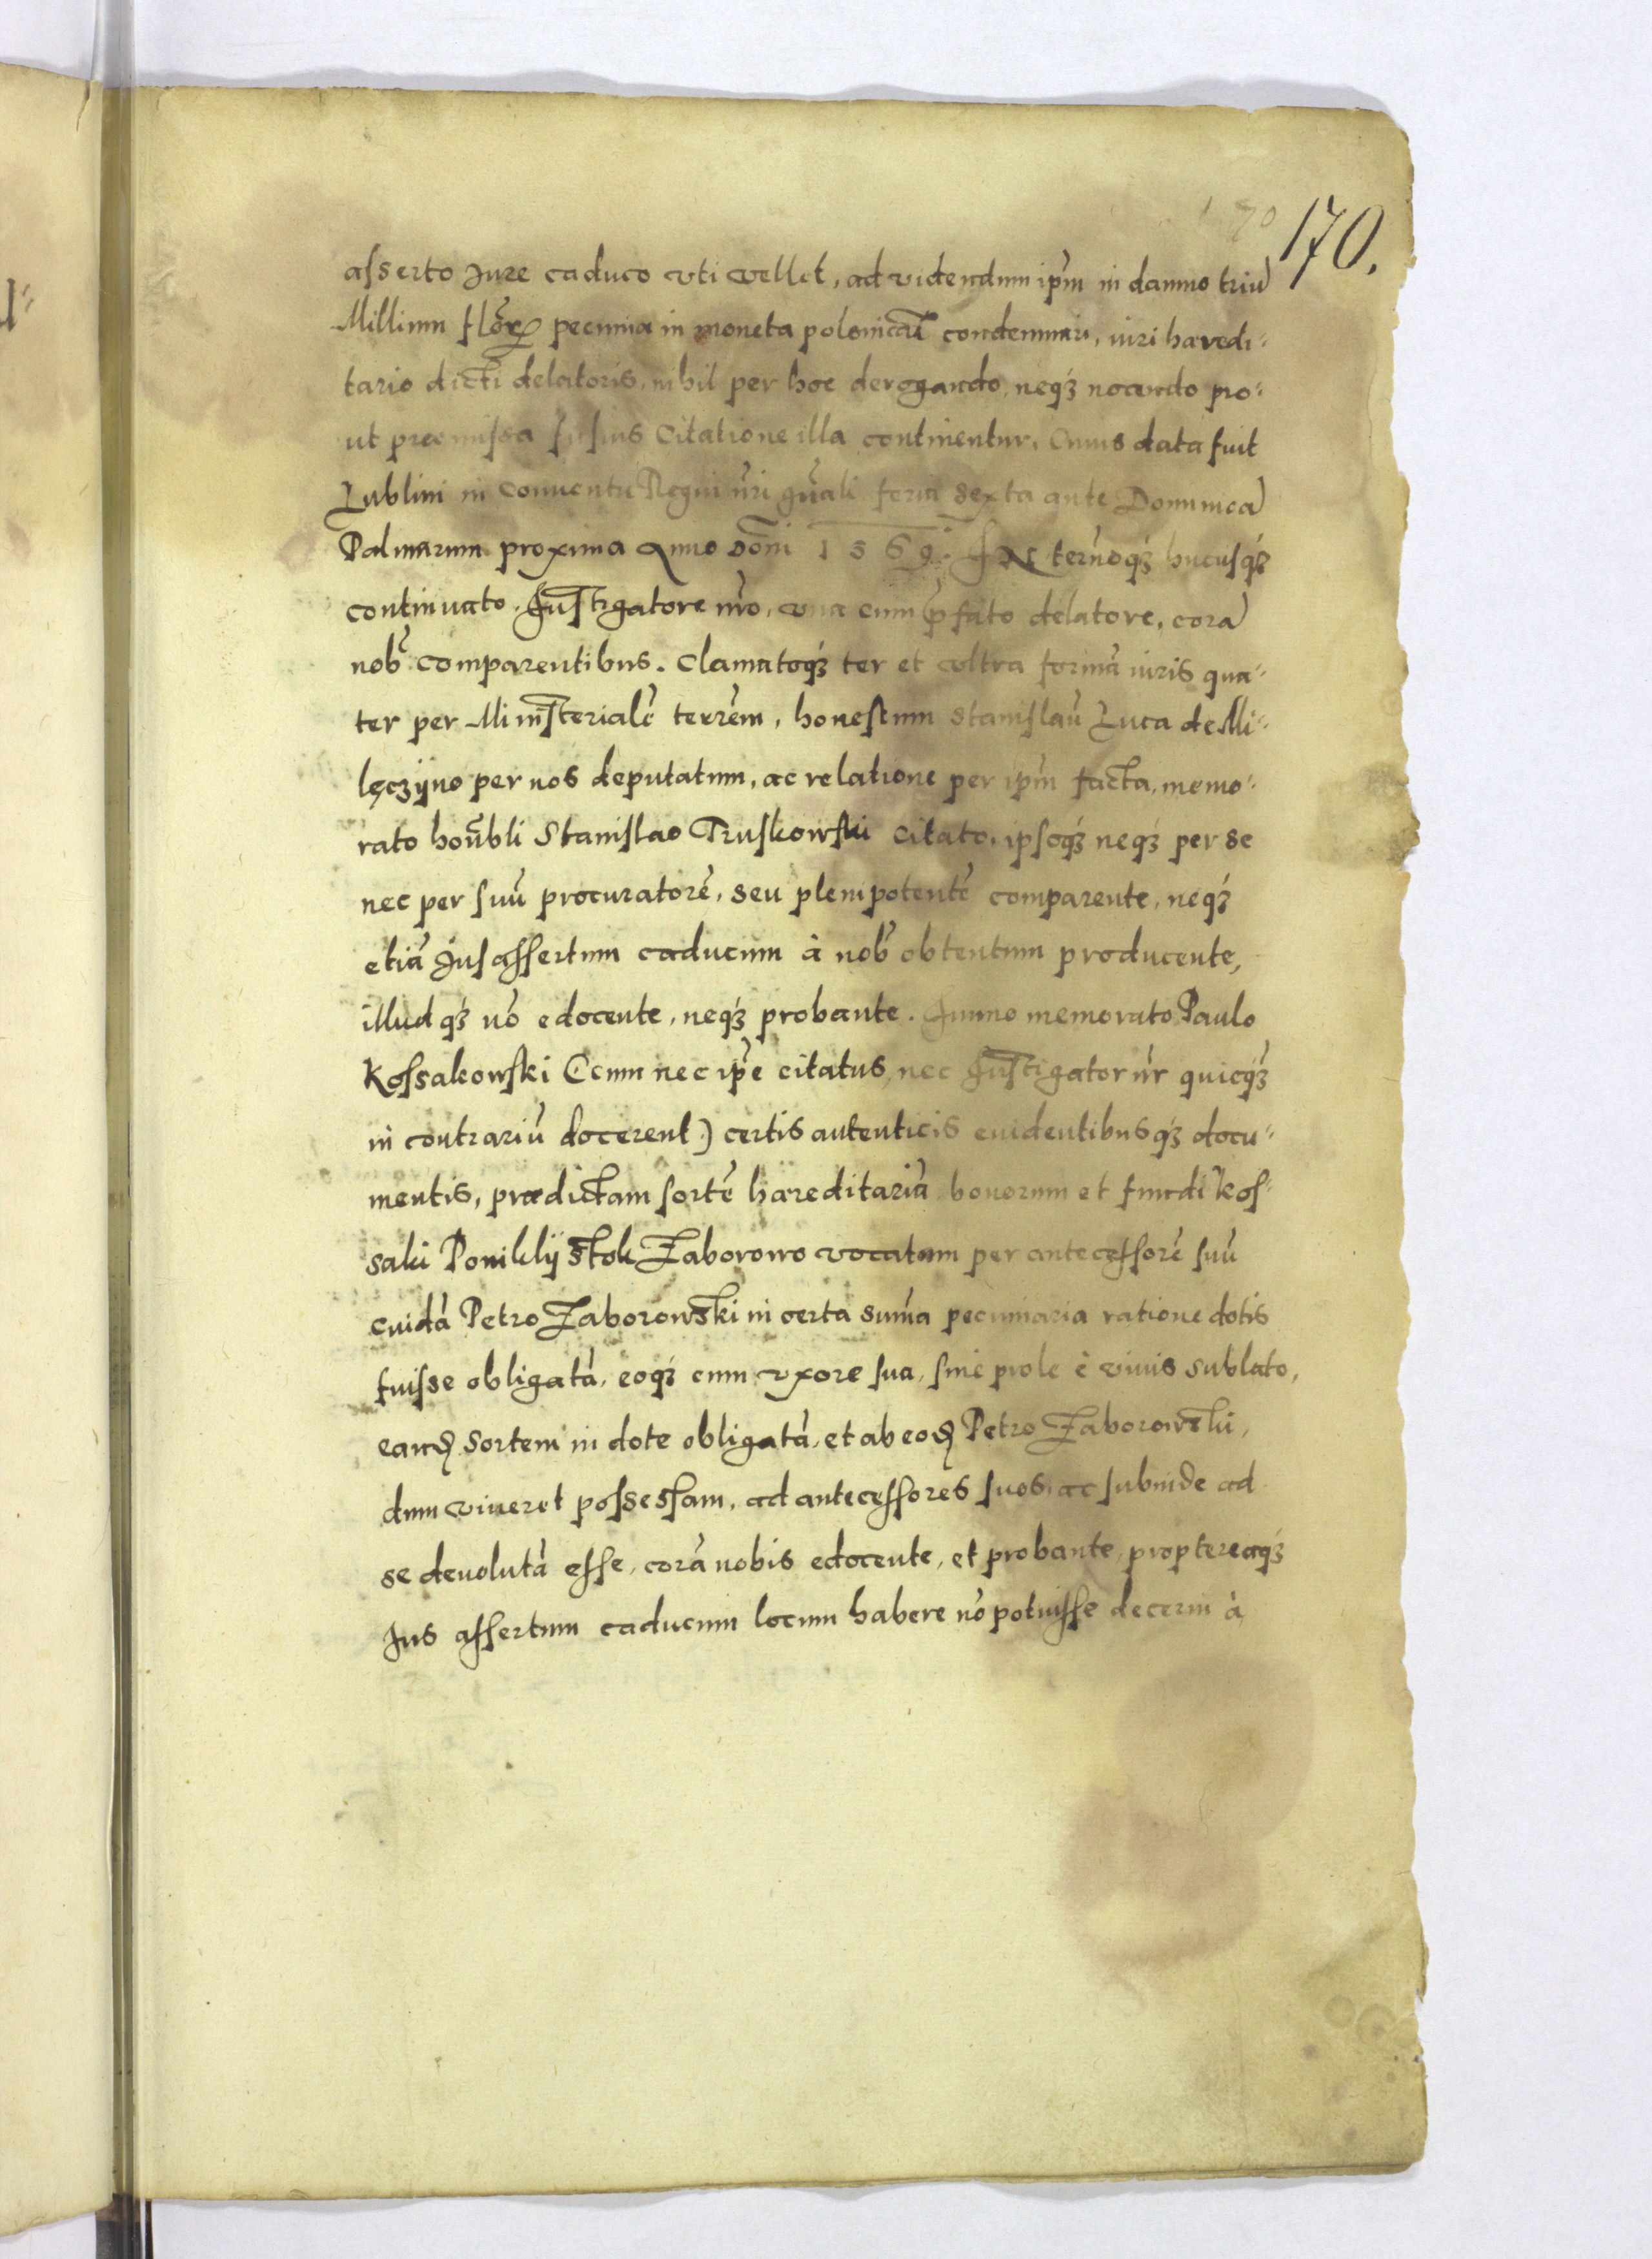 170.
asserto Jure caduco vti vellet, ad videndum ipm̃ in damno triũ
Millium florꝝ pecunia in moneta polonicali condemnari, iuri haredi-
tario dicti delatoris, nihil per hoc derogando, neqʒ nocendo pro-
ut præmissa fusius Citatione illa continentur. Cuius data fuit
Lublini in Conuentu Regni nr̃i gñali feria sexta ante Dominicã
Palmarum proxima Anno Dom̃i 1569. IN ternoqʒ hucusqʒ
continuato, Instigatore nr̃o, vna cum p̃fato delatore, corã
nob̃ comparentibus. Clamatoqʒ ter et vltra formã iuris qua-
ter per Ministerialẽ terrẽm, honestum Stanislaũ Luca de Mi-
lęczijno per nos deputatum, ac relatione per ipm̃ facta, memo-
rato hoñbli Stanislao Truskowski citato, ipsoqʒ neqʒ per se
nec per suũ procuratorẽ, seu plenipotentẽ comparente, neqʒ
etiã Jus assertum caducum à nob̃ obtentum producente,
illudqʒ nõ edocente, neqʒ probante. Immo memorato Paulo
Kossakowski (cum nec ip̃e citatus, nec Instigator nr̃ quicqʒ̃
in contrariũ docerent) certis autenticis euidentibusqʒ docu-
mentis, prædictam sortẽ hæreditariã bonorum et fundi Kos-
saki Ponikly Stok Zaborowo vocatam per antecessorẽ suũ
cuidã Petro Zaborowski in certa sum̃a pecuniaria ratione dotis
fuisse obligatã, eoqʒ cum vxore sua, sine prole è viuis sublato,
eandẽ sortem in dote obligatã, et ab eodẽ Petro Zaborowski,
dum viueret possessam, ad antecessores suos, ac subinde ad
se deuolutã esse, corã nobis edocente, et probante, proptereaqʒ
Jus assertum caducum locum habere nõ potuisse decerni à